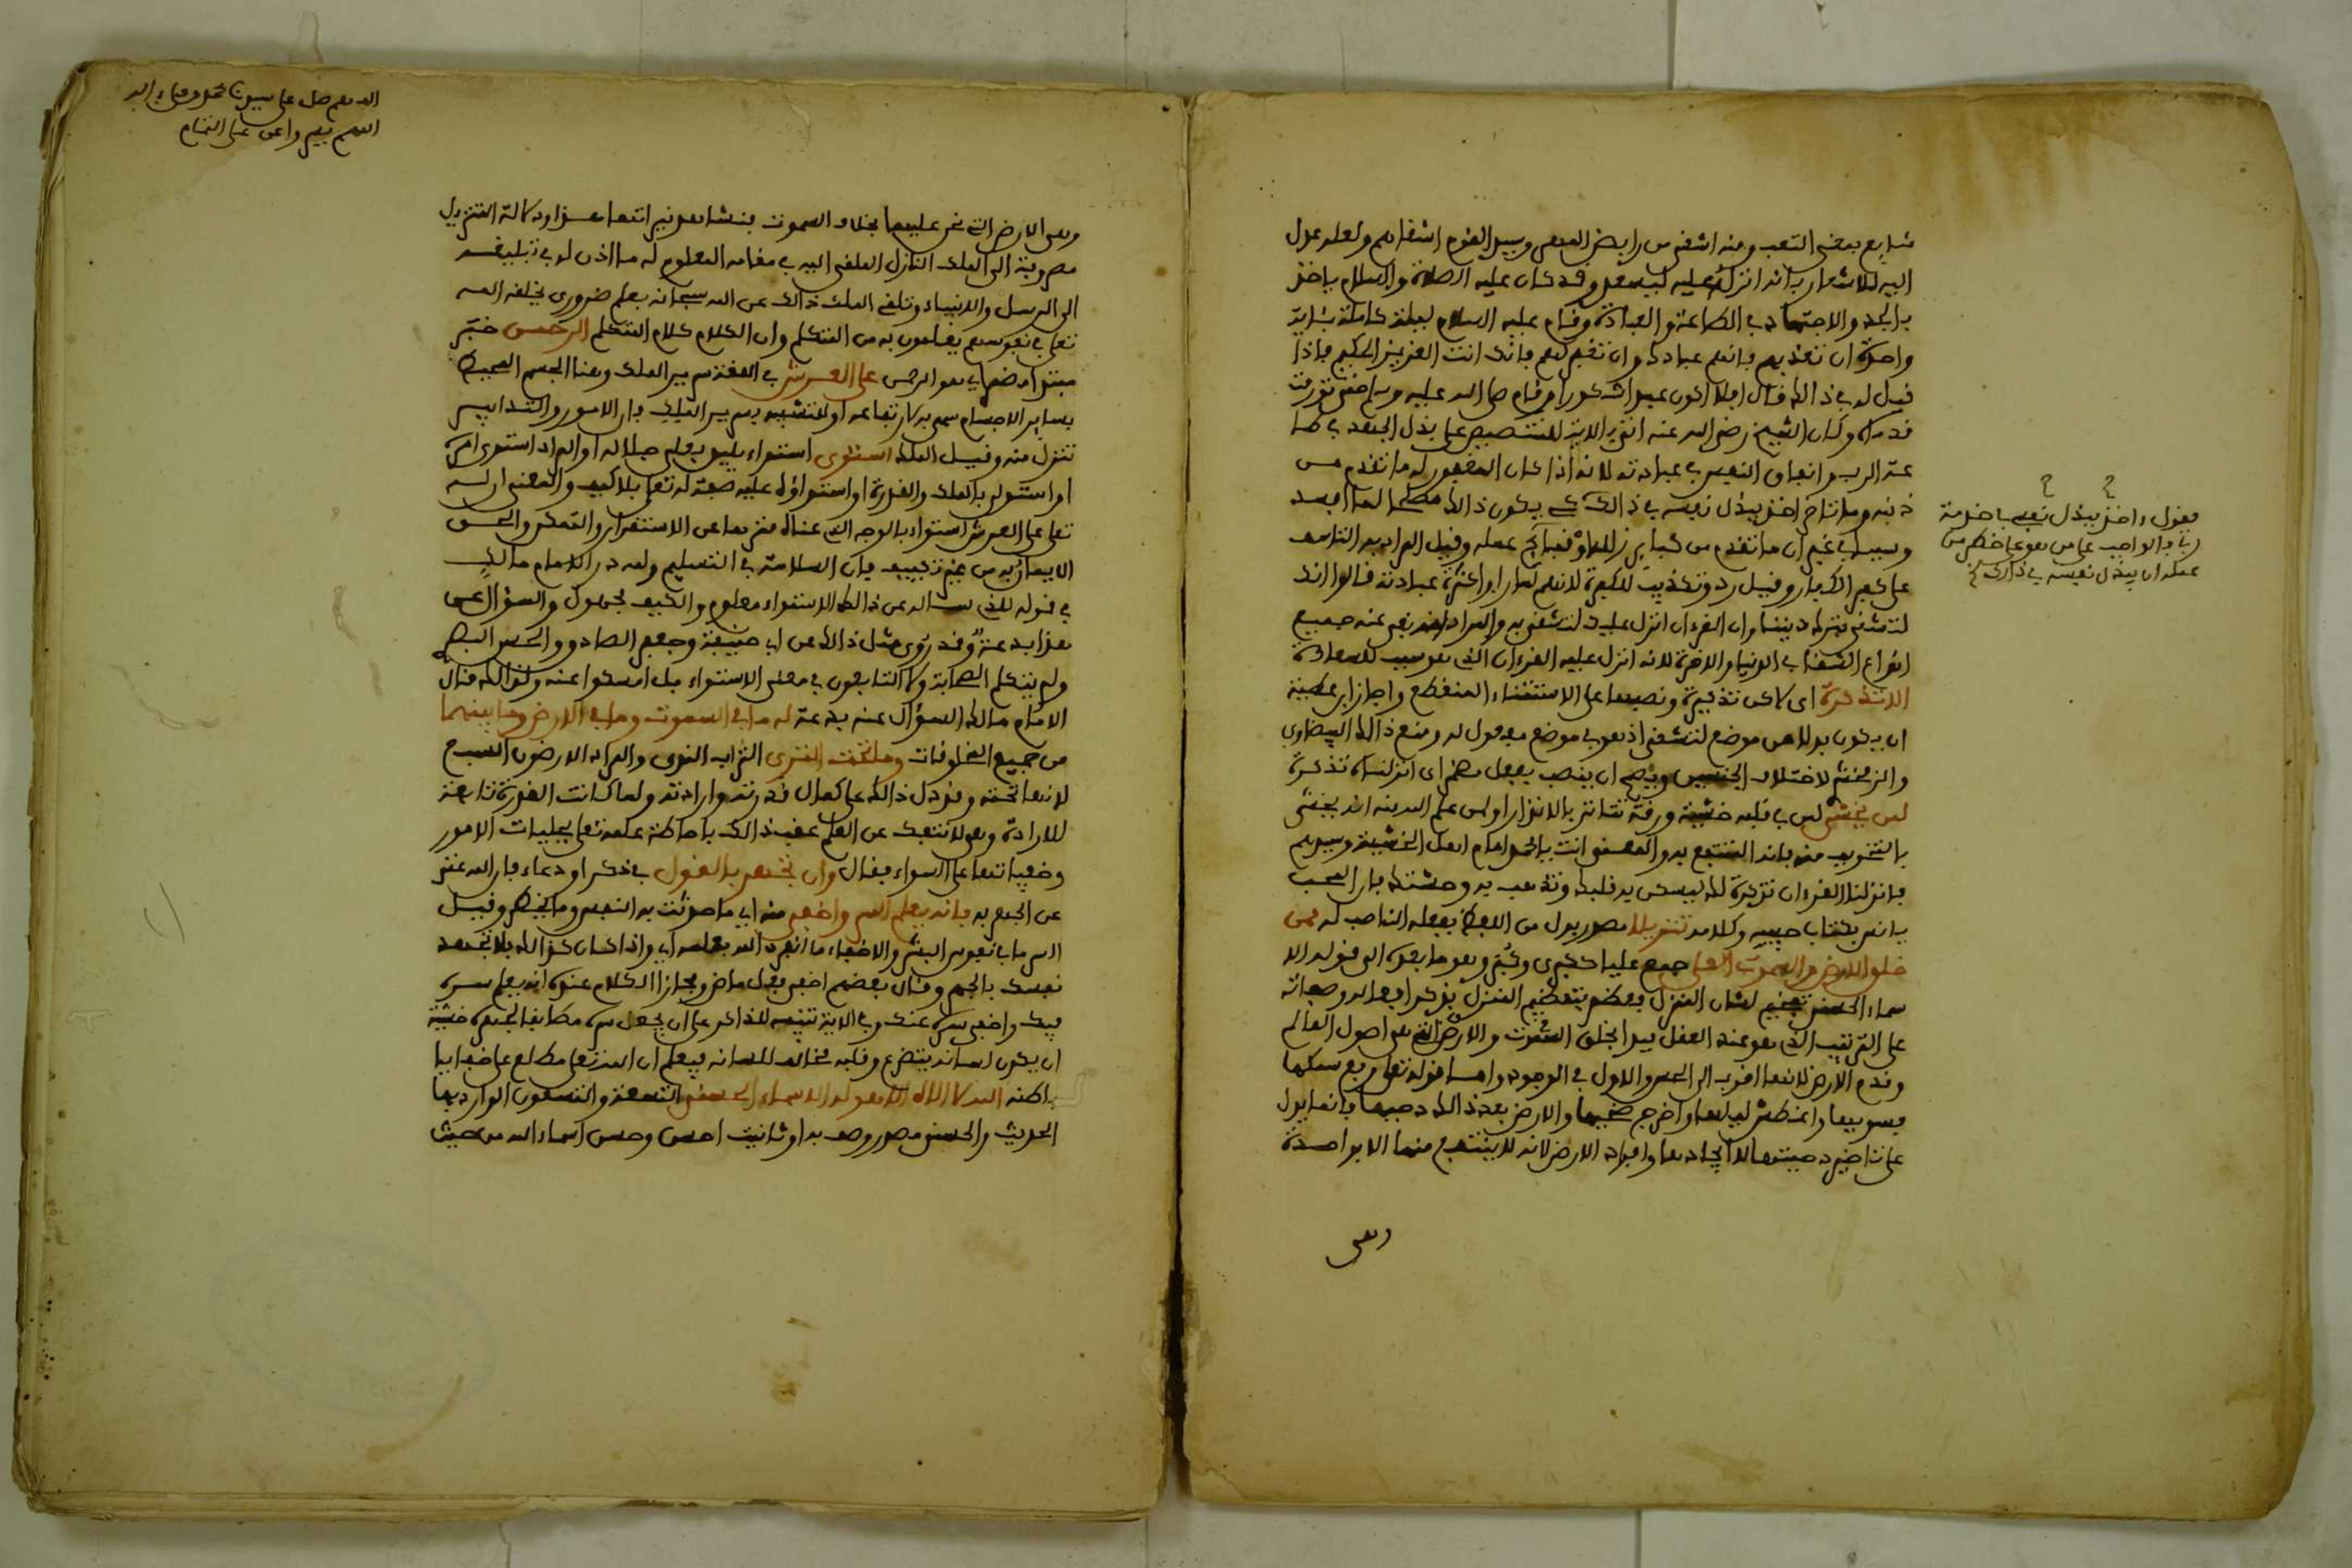 شايع بمعنى التعب ومنه اشقى من رايض المهر وسيد القوم اشقاهم ولعله عدل
اليه للاشعار بانه انزل عليه ليسعد وقد كان عليه الصلاة والسلام ياخذ
بالجد والاجتهاد في الطاعة والعبادة وقام عليه السلام ليلة كاملة بئاية
واحدة ان تعذبهم فانهم عبادك وان تغفر لهم فانك انت العزيز الحكيم فاذا
قيل له في ذالك قال افلا اكون عبدا شكورا وقام صلى الله عليه وسلم حتى تورمت
قدماه وكان الشيخ رضي الله عنه الاية للتنصيص على بذل الجهد في طا
عة الرب واتعاب النفس في عبادته لانه اذا كان المغفور له ما تقدم من
ذنبه وما تاخر اخذ يبذل نفسه في ذالك يكون ذالك
على كفر الكفار وقيل رد وتكذيب للكفرة لانهم لما راوا كثرة عبادته قالوا انك
لتشقى بترك ديننا وان القرءان انزل عليك لتشقى به والمراد نفي عنه جميع
انواع الشقا في الدنيا والاخرة لانه انزل عليه القرءان الذي هو سبب للسعادة
الا تذكرة اي لاكن تذكيرة ونصبها على الاستثناء المنقطع واجاز ابن عطية
ان يكون بدلا من موضع لتشقى اذ هو في موضع مفعول له ومنع ذالك البيضاوي
والزمخشري لاختلاف الجنسين ويصح ان ينصب بفعل مضمر اي انزلناه تذكرة
لمن يخشى لمن في قلبه خشية ورقة تتاثر بالانذار او لمن علم الله منه انه يخشى
بالتخويف منه فانه المنتفع به والمعنى انت يا محمد امام اهل الخشية وسيدهم
فانزلنا القرءان تذكرة لك ليسكن به قلبك وتذهب به وحشتك فان المحب
يانس بكتاب حبيبه وكلامه تنزيلا مصدر بدل من اللفظ بفعله الناصب له ممن
خلق الارض والسموات العلى جمع عليا ككبرى وكبر وهو وما بعده الى قوله الا
سماء الحسنى تفخيم لشان المنزل بتعظيم المنزل بذكر افعاله وصفاته
على الترتيب الذي هو عند العقل فبدا بخلق السموات والارض التي هي اصول العالم
وقدم الارض لانها اقرب الى الحس والاول في الوجود واما قوله تعلى رفع سمكها
فسويها واغطش ليلها واخرج ضحيها والارض بعد ذالك دحيها فانما يدل
على تاخير دحيتها لا ايجادها وافراد الارض لانه لا ينتفع منها الا بواحدة
وهي
فقول اخذ يبذل نفسه
وهي الارض التي نحن عليها بخلاف السموات
مصروفة الى الملك النازل الملقى اليه في مقامه المعلوم له ما اذن له في تبليغه
الى الرسل والانبياء وتلقى الملك ذالك عن الله سبحانه بعلم ضروري يخلقه الله
تعلى في نفوسهم يعلمون به من المتكلم وان الكلام كلام المتكلم الرحمن خبر
مبتدا مضمر اي هو الرحمن على العرش في اللغة سرير الملك وهنا الجسم المحيط
بساير الاجسام سمي به لارتفاعه او للتشبيه بسرير الملك فان الامور والتدابير
تنزل منه وقيل الملك استوى استواء يليق بعلي جلاله او المراد استوى امره
او استولى بالملك والقدرة او استواؤه عليه صفة له تعلى بلا كيف والمعنى ان له
تعلى على العرش استواء بالوجه الذي عناه منزها عن الاستقرار والتمكن والحق
الايمان به من غير تكييف فان السلامة في التسليم ولله در الامام مالك
في قوله للذي ساله عن ذالك الاستواء معلوم والكيف مجهول والسؤال عن
هذا بدعة وقد روي مثل ذالك عن ابي حنيفة وجعفر الصادق والحسن البصر
ولم يتكلم الصحابة ولا التابعون في معنى الاستواء بل امسكوا عنه ولذالك قال
الامام مالك السؤال عنه بدعة له ما في السموت وما في الارض وما بينهما
من جميع المخلوقات وما تحت الثرى التراب الندى والمراد الارضون السبع
لانها تحته وقد دل ذالك على كمال قدرته وارادته ولما كانت القدرة تابعة
للارادة وهي لا تنفك عن العلم عقب ذالك باحاطة علمه تعلى بجليات الامور
وخفياتها على السواء فقال وان تجهر بالقول في ذكر او دعاء فان الله غني
عن الجهر به فانه يعلم السر واخفى منه اي ما حدثت به النفس وما يخطر وقيل
السر ما في نفوس البشر والاخفى ما انفرد الله بعلمه اي واذا كان كذالك فلا تجهد
نفسك بالجهر وقال بعضهم اخفى فعل ماض ومجاز الكلام عنده انه يعلم سره
فيك واخفى سره عنك وفي الاية تنبيه للذاكر على ان يجعل سره مطابقا لجهره خشية
ان يكون لسانه يتضرع وقلبه مخالف للسانه فيعلم ان الله تعلى مطلع على خفايا
باطنه الله لا اله الا هو له الاسماء الحسنى التسعة والتسعون الوارد بها
الحديث والحسنى مصدر وصف به او تانيث احسن وحسن اسماء الله من حيث